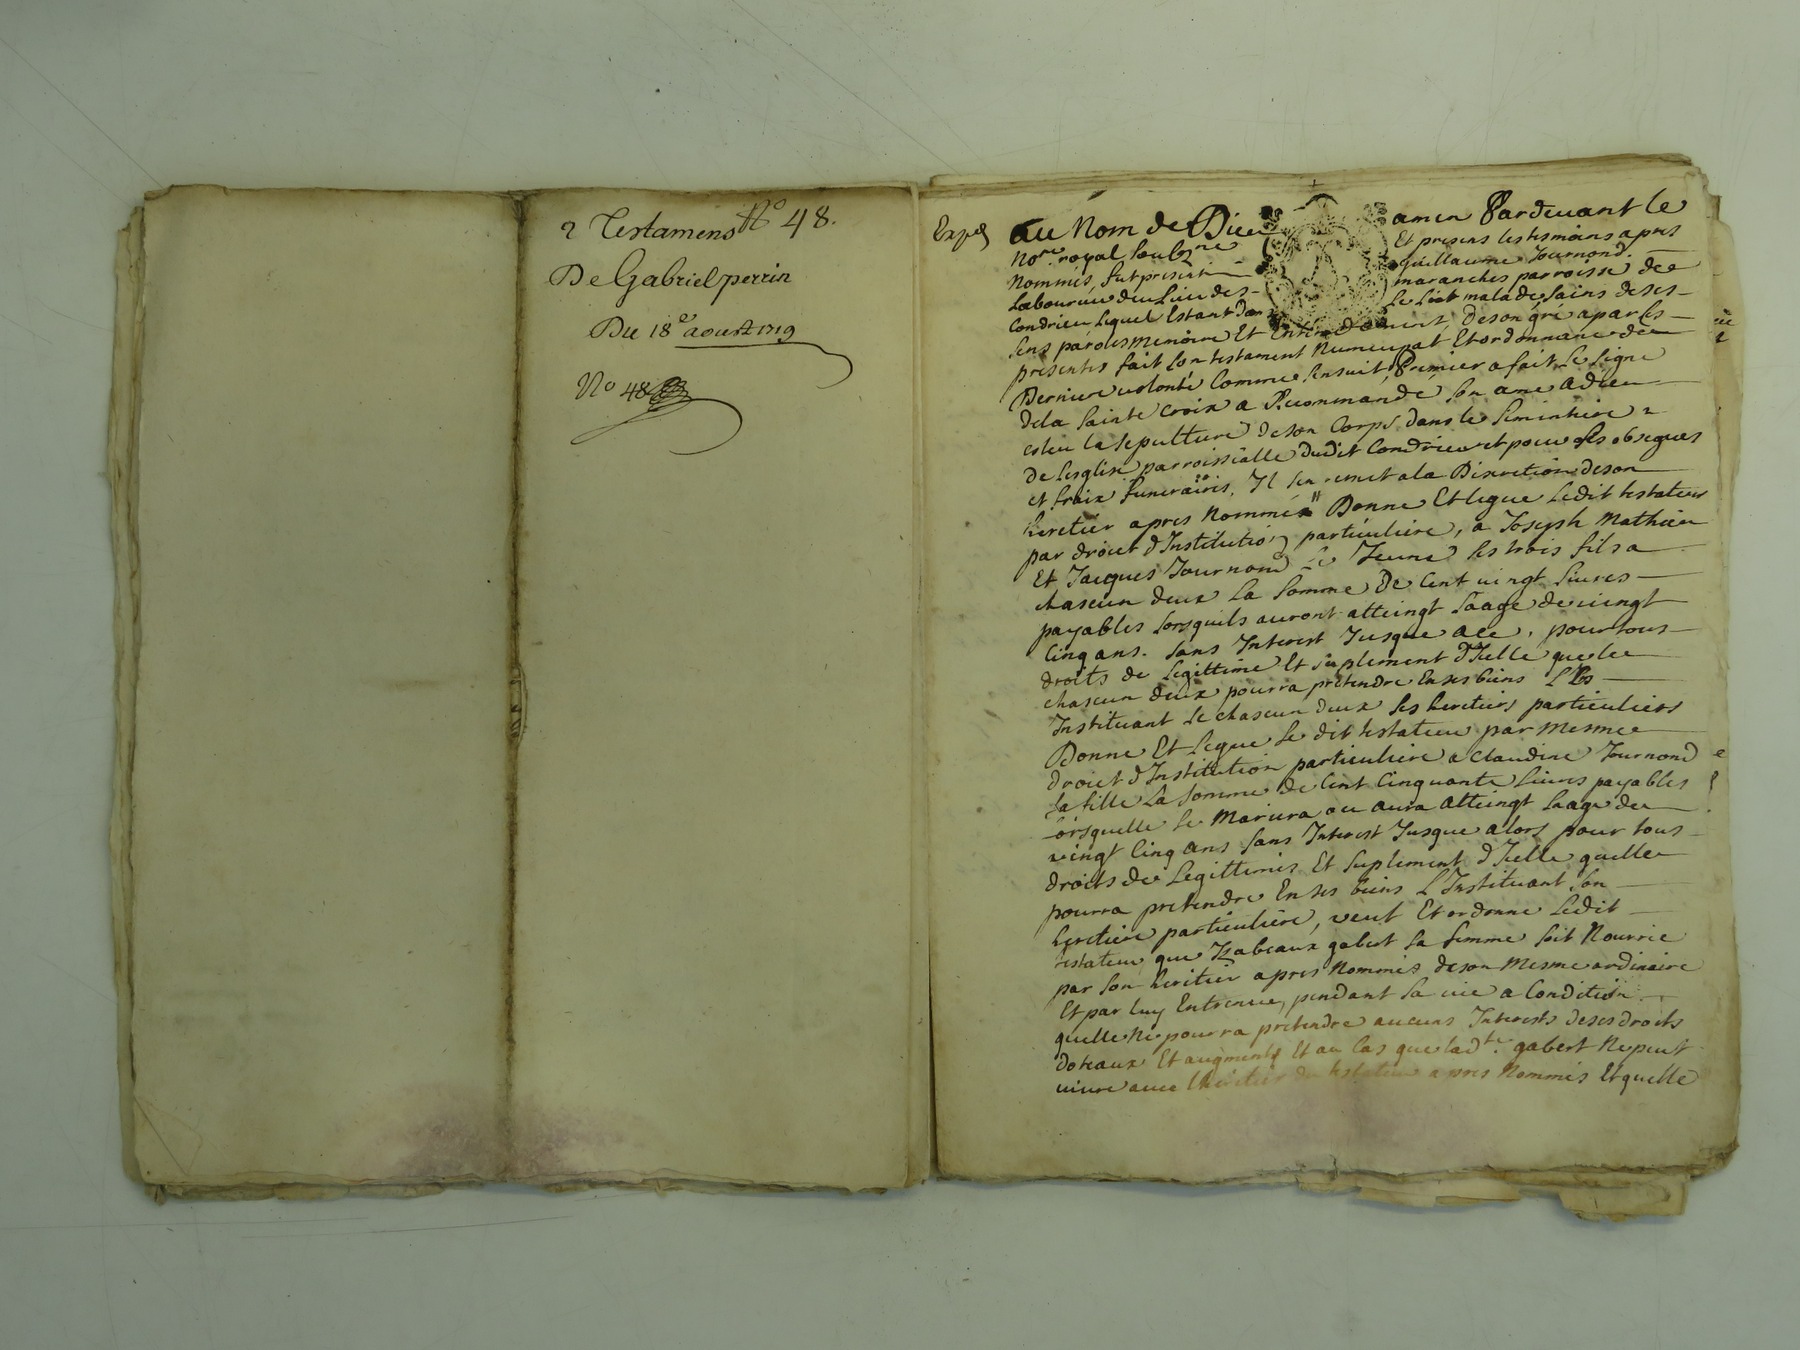 2 Testamens N° 48.
De Gabriel perrin
Du 18e aoust 1719
N° 48
Exped
au Nom de Dieu amen Pardevant le
Nore. royal soubzne Et presens les tesmoins apres
Nommés, fut present Guillaume Journond.
Laboureur du Lieu des maranches parroisse de
Condrieu lequel Estant dans le lict malade sains de ses
sens paroles memoire Et Entendement, de son gré a par les
presentes fait son testament Nuncupat Et ordonnance de
Derniere volonté Comme sensuit, Premier a fait le signe
de la sainte Croix a Recommandé son ame a dieu
esleu la sepulture de son Corps dans le Simintiere
de lesglise parroissialle dudit Condrieu et pour ses obseques
et fraix funeraires, Il sen remet a la Discretion de son
heretier apres Nommé Donne Et legue ledit testateur
par droict d'Institution particuliere, a Joseph Mathieu
Et Jacques Journond Le Jeune ses trois fils a
chascun deux La somme De Cent vingt Livres
payables lorsquils auront atteingt Laage de vingt
Cinq ans. sans Interest Jusque a ce, pour tous
droits de Legittime Et suplement d'Icelle que le
chascun deux pourra pretendre En ses biens Les
Instituant le chascun deux ses heretiers particuliers
Donne Et Legue le dit testateur par mesme
droict d'Institution particuliere a Claudine Journond
sa fille La somme de Cent Cinquante Livres payables
lorsquelle se Mariera ou aura atteingt Laage de
vingt Cinq ans sans Interest Jusque alors pour tous
droits de Legittimes Et suplement d'Icelle quelle
pourra pretendre En ses biens L'Instituant son
heretiere particuliere, veut Et ordonne ledit
testateur que Izabeaux gabert sa femme soit Nourrie
par son heritier apres Nommés de son mesme ordinaire
Et par luy Entretenue, pendant sa vie a Condition
quelle Ne pourra pretendre aucuns Interests de ses droits
doteaux Et augments Et au Cas que ladte. gabert Ne peut
vivre avec lheritier du testateur apres Nommés Et quelle